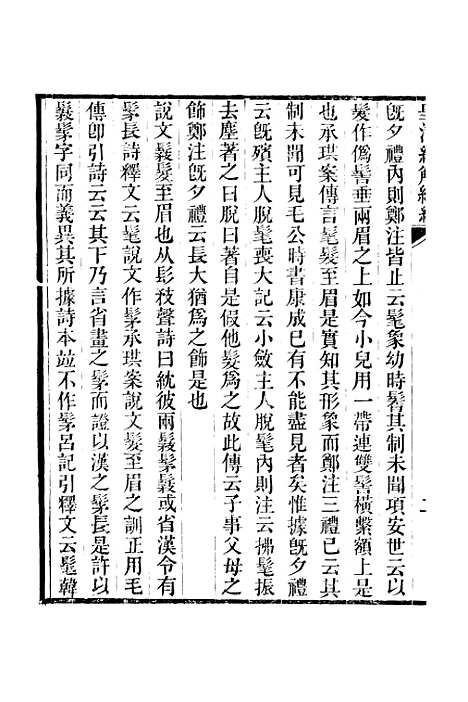 旣夕禮內則鄭注皆止云髦象幼時鬌其制未聞項安世云以
髮作僞髻垂兩眉之上如今小兒用一帶連雙髻橫繫額上是
也承珙案傳言髦髮至眉是實知其形象而鄭注三禮已云其
制未聞可見毛公時書康成已有不能盡見者矣惟據旣夕禮
云旣殯主人脫髦喪大記云小斂主人脫髦內則注云拂髦振
去塵著之曰脫曰著自是假他髮爲之故此傳云子事父母之
飾鄭注旣夕禮云長大猶爲之飾是也
說文鬏髮至眉也从髟敄聲詩曰紞彼兩鬏髳鬏或省漢令有
髳長詩釋文云髦說文作髳承珙案說文髮至眉之訓正用毛
傳卽引詩云云其下乃言省畫之髳而證以漢之髳長是許以
鬏髳字同而義異其所據詩本竝不作髳呂記引釋文云髦韓